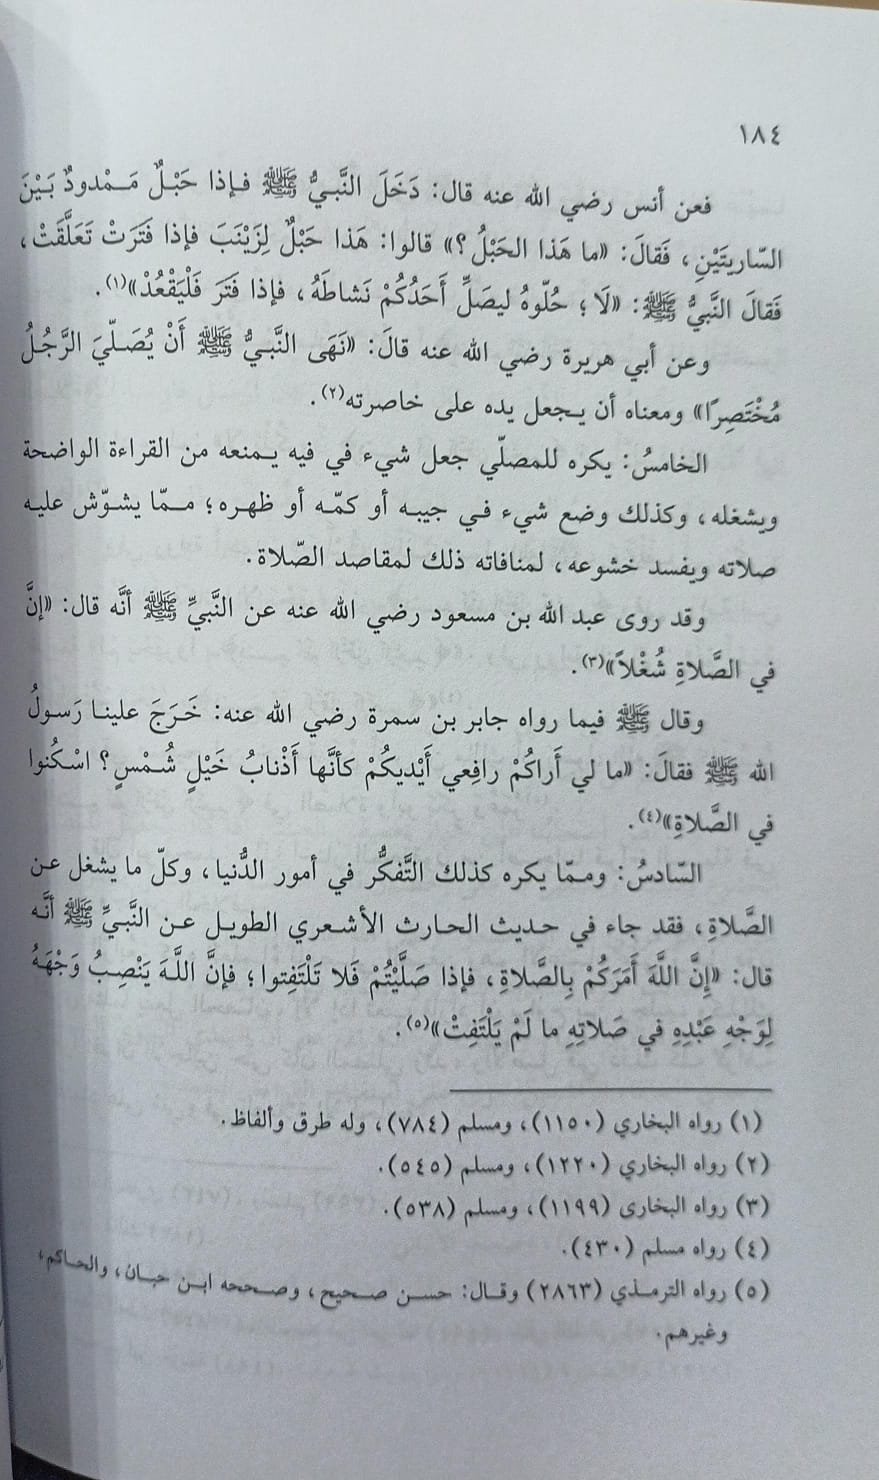 ١٨٤
فعن أنس رضي الله عنه قال: دَخَلَ النَّبيُّ ﷺ فـإذا حَبْـلٌ مَـمْـدودٌ بَـيْـنَ
السّارِيتَيْنِ، فَقالَ: «ما هَذا الحَبْلُ؟» قالوا: هَذا حَبْلٌ لِزَيْنَبَ فإذا فَتَرَتْ تَعَلَّقَتْ،
فَقالَ النَّبيُّ ﷺ: «لَا؛ حُلّوهُ ليصَلِّ أَحَدُكُمْ نَشاطَهُ، فإذا فَتَرَ فَلْيَقْعُدْ»(١).
وعن أبي هريرة رضي الله عنه قالَ: «نَهَى النَّبيُّ ﷺ أَنْ يُصَلّيَ الرَّجُلُ
مُخْتَصِرًا» ومعناه أن يجعل يده على خاصرته(٢).
الخامسُ: يكره للمصلّي جعل شيء في فيه يمنعه من القراءة الواضحة
ويشغله، وكذلك وضع شيء في جيبه أو كمّه أو ظهره؛ ممّا يشوّش عليه
صلاته ويفسد خشوعه، لمنافاته ذلك لمقاصد الصّلاة.
وقد روى عبد الله بن مسعود رضي الله عنه عن النَّبيِّ ﷺ أنَّه قال: «إنَّ
في الصَّلاةِ شُغْلاً»(٣).
وقال ﷺ فيما رواه جابر بن سمرة رضي الله عنه: خَرَجَ علينا رَسولُ
الله ﷺ فقالَ: «ما لي أَراكُمْ رافِعي أَيْديكُمْ كأنَّها أَذْنابُ خَيْلٍ شُمْسٍ؟ اسْكُنوا
في الصَّلاةِ»(٤).
السّادسُ: وممّا يكره كذلك التَّفكُّر في أمور الدُّنيا، وكلّ ما يشغل عن
الصَّلاةِ، فقد جاء في حديث الحارث الأشعري الطويل عن النَّبيِّ ﷺ أنَّه
قال: «إنَّ اللَّهَ أَمَرَكُمْ بِالصَّلاةِ، فإذا صَلَّيْتُمْ فَلا تَلْتَفِتوا؛ فإنَّ اللَّهَ يَنْصِبُ وَجْهَهُ
لِوَجْهِ عَبْدِهِ في صَلاتِهِ ما لَمْ يَلْتَفِتْ»(٥).
(١) رواه البخاري (١١٥٠)، ومسلم (٧٨٤)، وله طرق وألفاظ.
(٢) رواه البخاري (١٢٢٠)، ومسلم (٥٤٥).
(٣) رواه البخارى (١١٩٩)، ومسلم (٥٣٨).
(٤) رواه مسلم (٤٣٠).
(٥) رواه الترمذي (٢٨٦٣) وقال: حسن صحيح، وصححه ابن حبان، والحاكم،
وغيرهم.